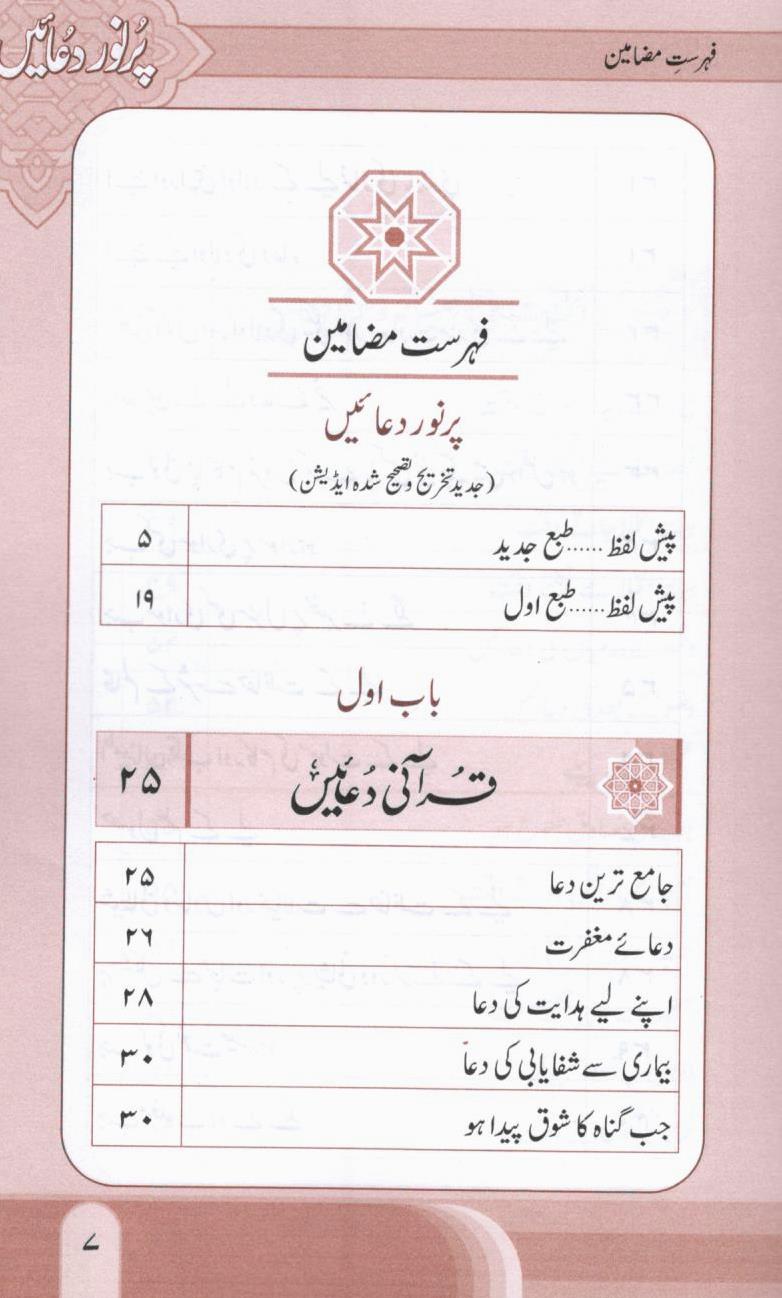 فہرستِ مضامین
پُرنور دُعائیں
فہرست مضامین
پرنور دعائیں
(جدید تخریج و تصحیح شدہ ایڈیشن)
پیش لفظ......طبع جدید ۵
پیش لفظ......طبع اول ۱۹
باب اول
قُرآنی دُعائیں ۲۵
جامع ترین دعا ۲۵
دعائے مغفرت ۲۶
اپنے لیے ہدایت کی دعا ۲۸
بیماری سے شفایابی کی دعا ۳۰
جب گناہ کا شوق پیدا ہو ۳۰
۷